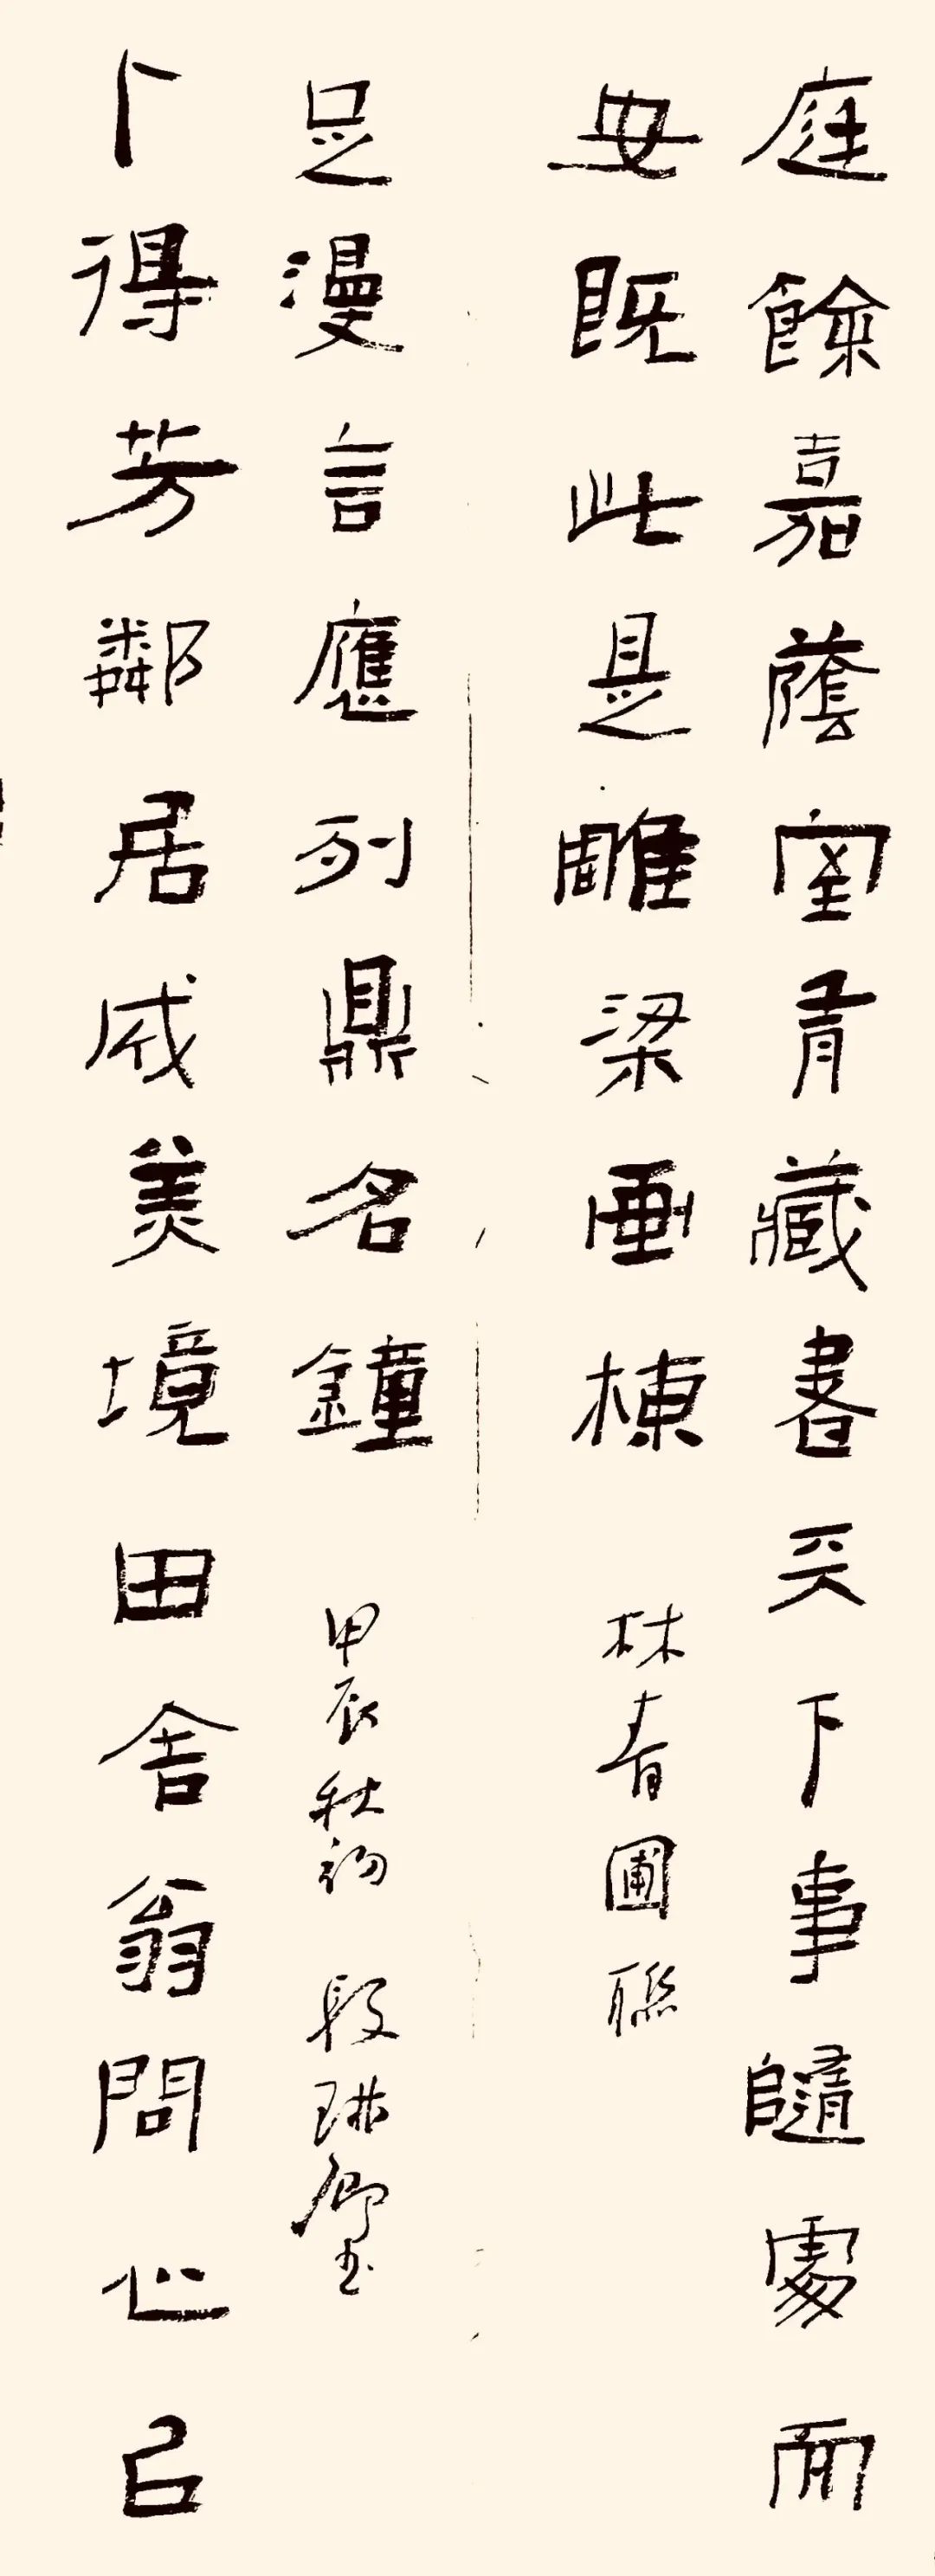 庭餘嘉蔭室有藏書天下事隨處而
安既此是雕梁畫棟
林青圃聯
卜得芳鄰居成美境田舍翁問心已
足漫言應列鼎名鐘
甲辰秋初 段琳卿书